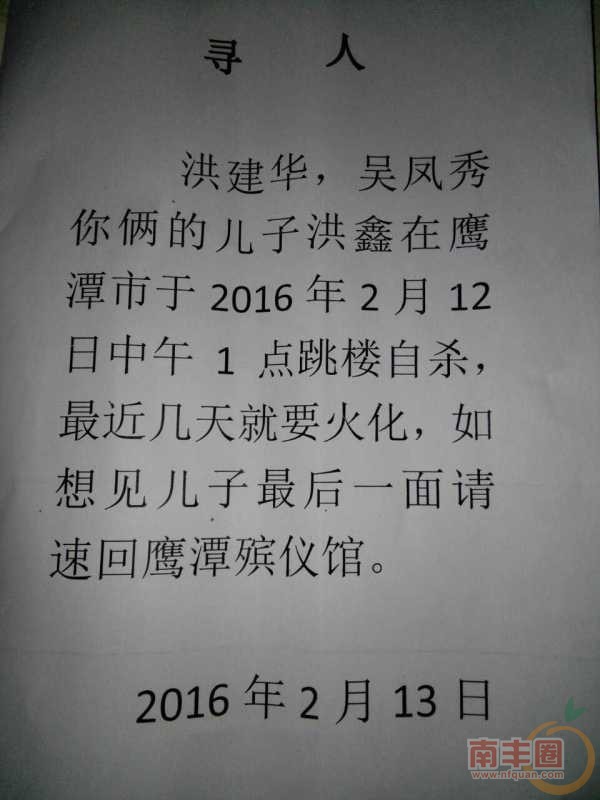 寻 人
洪建华，吴凤秀
你俩的儿子洪鑫在鹰
潭市于 2016 年 2 月 12
日中午 1 点跳楼自杀，
最近几天就要火化，如
想见儿子最后一面请
速回鹰潭殡仪馆。
2016 年 2 月 13 日
南丰圈
www.nfquan.com